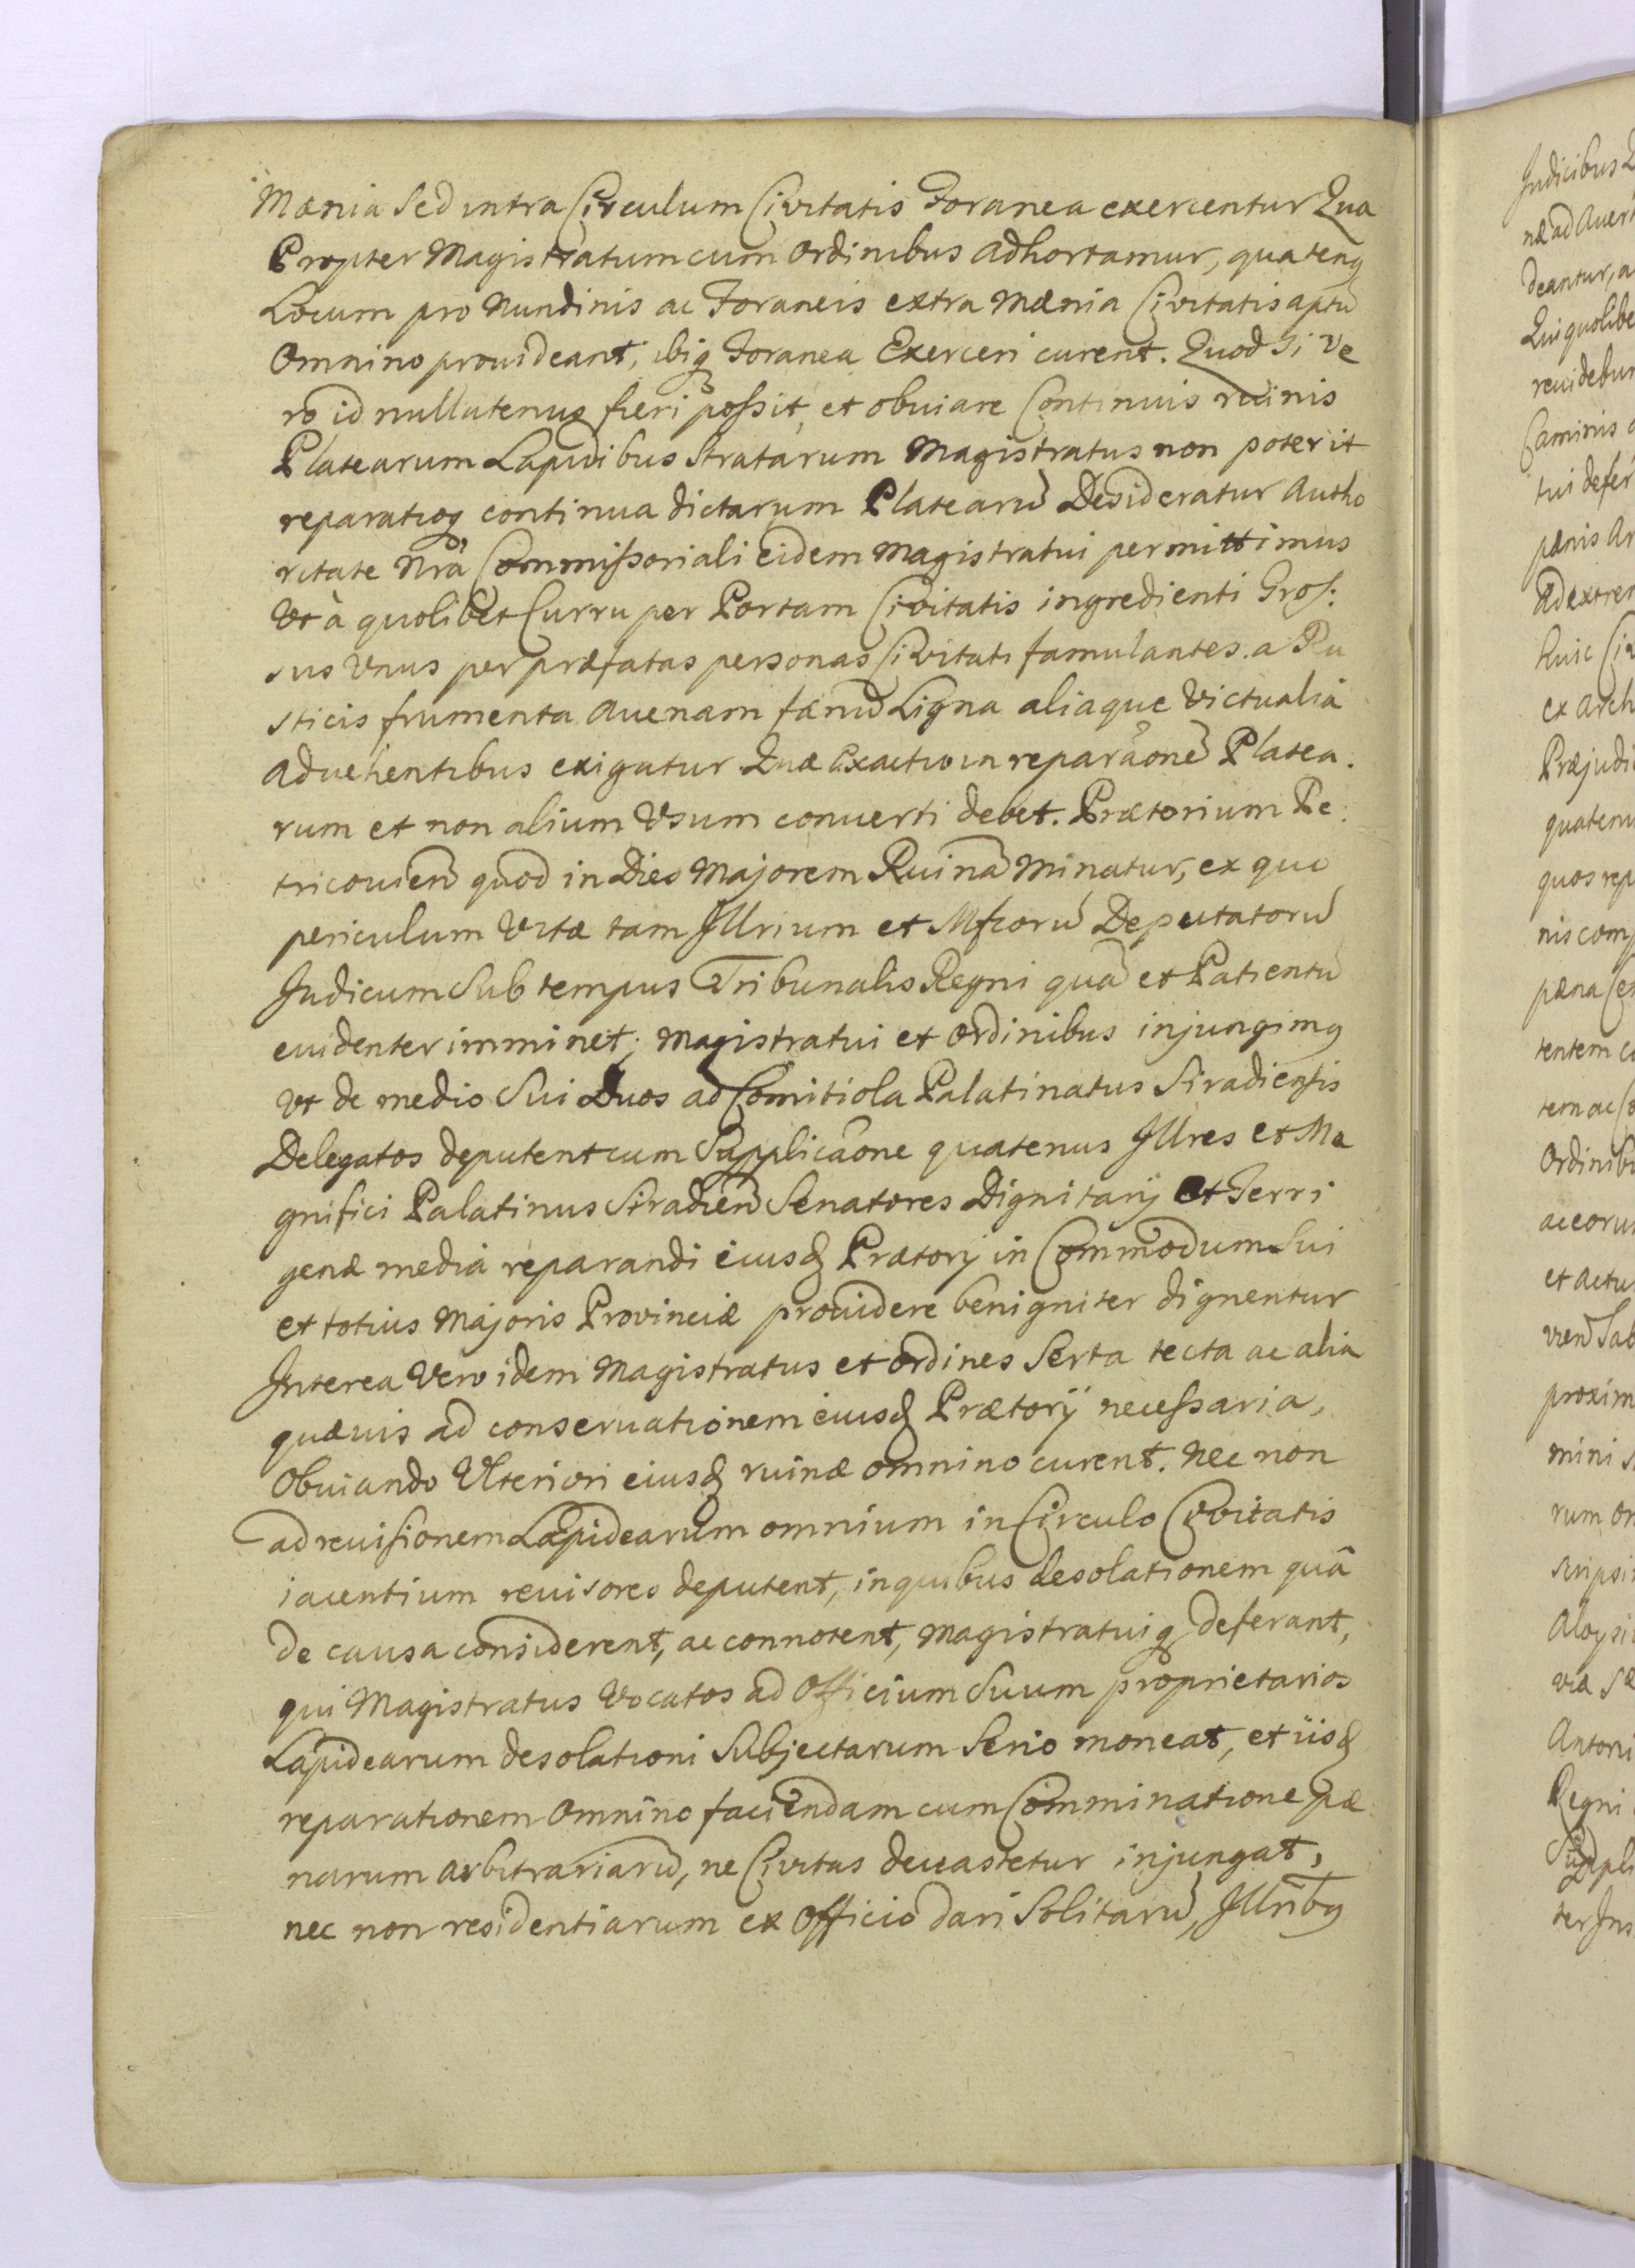 Mænia sed intra Circulum Civitatis Foranea exercentur Qua
Propter Magistratum cum Ordinibus adhortamur, quatenq
Locum pro Nundinis ac Foraneis extra Mænia Civitatis aptũ
Omnino prouideant, ibiq Foranea Exerceri curent. Quod si Ve
ro id nullatenus fieri possit, et obuiare Continuis ruinis
Platearum Lapidibus stratarum Magistratus non poterit
reparatioq continua dictarum Platearũ Desideratur Autho
ritate Nrã Commissoriali eidem Magistratui permittimus
Vt à quolibet Curru per Portam Civitatis ingredienti Gros:
sus Vnus per præfatas personas Civitati famulantes. a Ru
sticis frumenta Auenam fænũ Ligna aliaque Victualia
aduehentibus exigatur Quæ Exactio in reparãonẽ Platea.
rum et non alium Vsum conuerti debet. Prætorium Pe:
tricouien̄ quod in Dies Majorem Ruinã Minatur, ex quo
periculum Vitæ tam Illrium et Mfcorũ Deputatorũ
Judicum Sub tempus Tribunalis Regni quã et Patientũ
euidenter imminet; Magistratui et Ordinibus injungimq
Vt de medio Sui Duos ad Comitiola Palatinatus Siradiensis
Delegatos deputent cum Supplicãone quatenus Illres et Ma
gnifici Palatinus Siradien̄ Senatores Dignitarij Et Terri
genæ media reparandi eiusd Prætorij in Commodum Sui
et totius Majoris Provinciæ prouidere benigniter dignentur
Interea Vero idem Magistratus et Ordines Serta tecta ac alia
quævis ad conseruationem eiusd Prætorij necessaria,
Obuiando Vlteriori eiusd ruinæ omnino curent. Nec non
ad reuisionem Lapidearum omnium in Circulo Civitatis
iacentium reuisores deputent, in quibus desolationem quâ
de causa considerent, ac connotent, Magistratuiq deferant,
qui Magistratus Vocatos ad Officium Suum proprietarios
Lapidearum desolationi Subjectarum Serio moneat, et iisd
reparationem Omnino faciendam cum Comminatione pæ
narum arbitrariarũ, ne Civitas deuastetur injungat,
nec non residentiarum ex Officio dari Solitarũ, Illribq
Judicibus
næ ad
deantur, a
Qui quolibe
reuidebun
Caminis
tui defer
pænis Ar
Ad extre
huic Civ
ex Arch
Præjudi
quatenu
quos rep
nis comp
pæna
tentem
tem ac
Ordinib
ac eoru
et actu
proxim
mini
rum
Aloysi
Antoni
Regni
Suppl